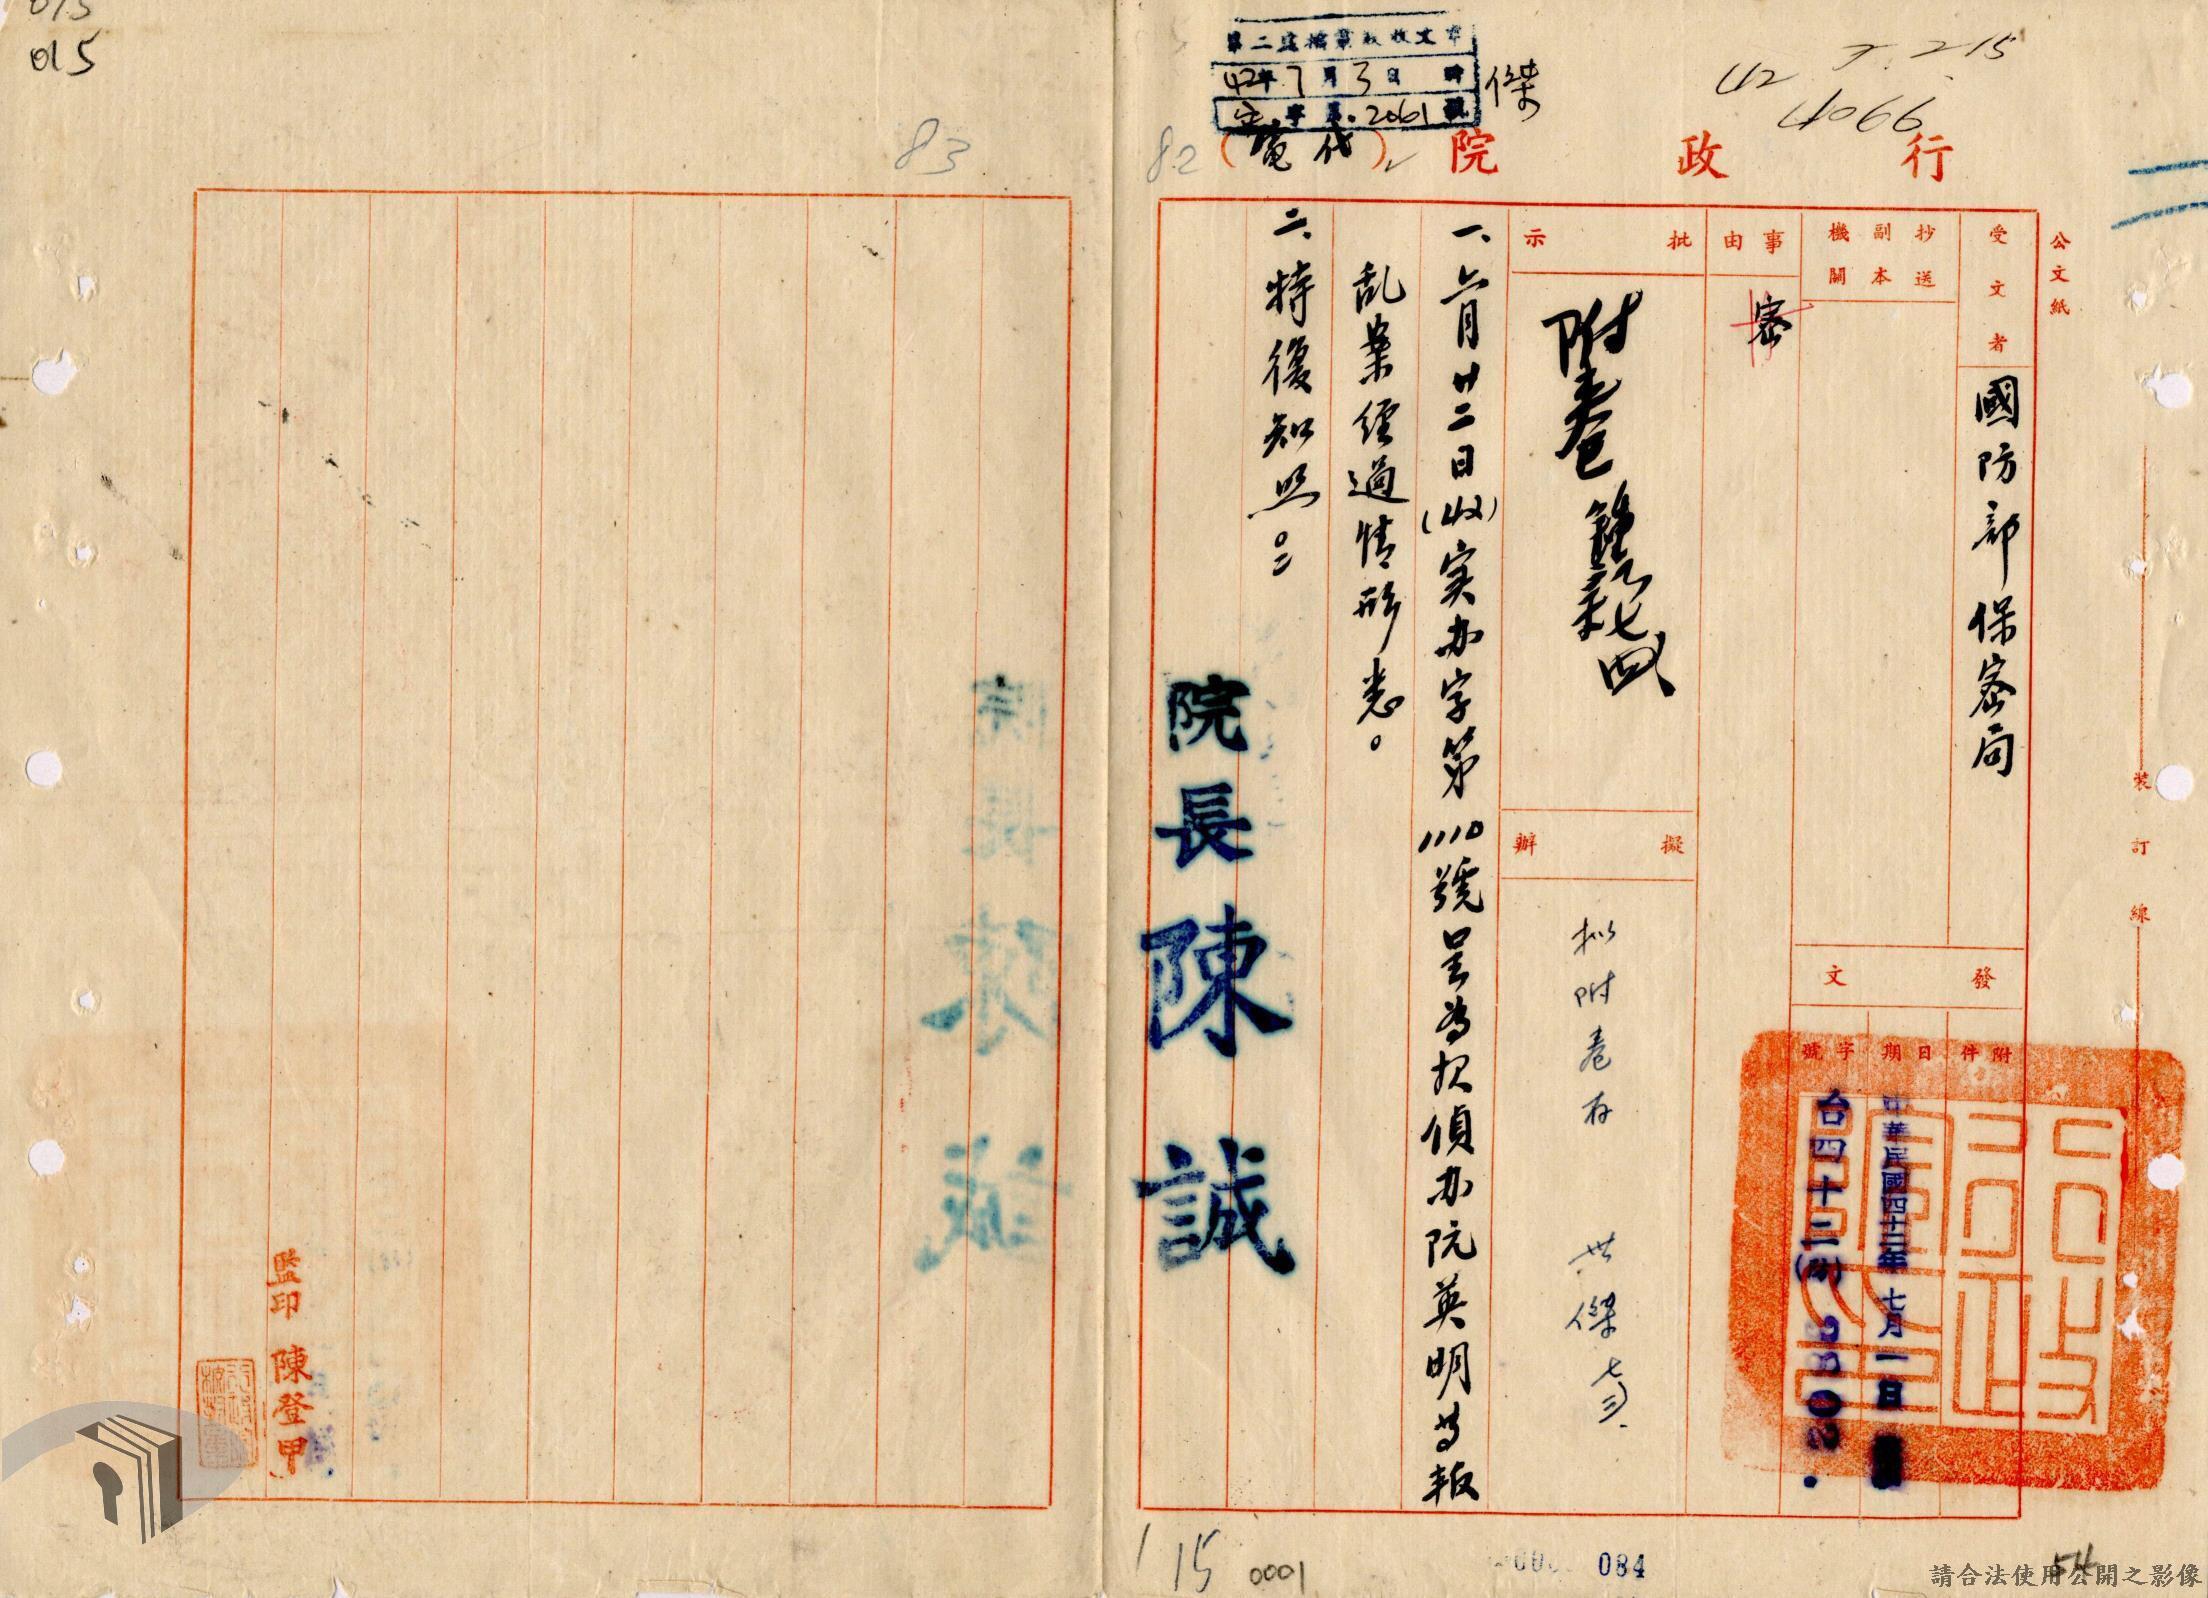 015
第二處檔案室收文章
42年7月3日 時
字第2061號
傑
42 7. 2 15
4066
83
82
行政院
(電代)
公文紙
受文者
國防部保密局
抄送副本機關
事由
密
批示
附卷
擬辦
拟附卷存
世傑
七三
發文
附件
日期
字號
中華民國四十二年七月一日
台四十二
一、六月廿二日(42)实办字第1110號呈為报偵办阮英明等叛
乱業經過情形悉。
二、特復知照。
院長陳誠
監印 陳登甲
裝訂線
15
0001
084
54
請合法使用公開之影像